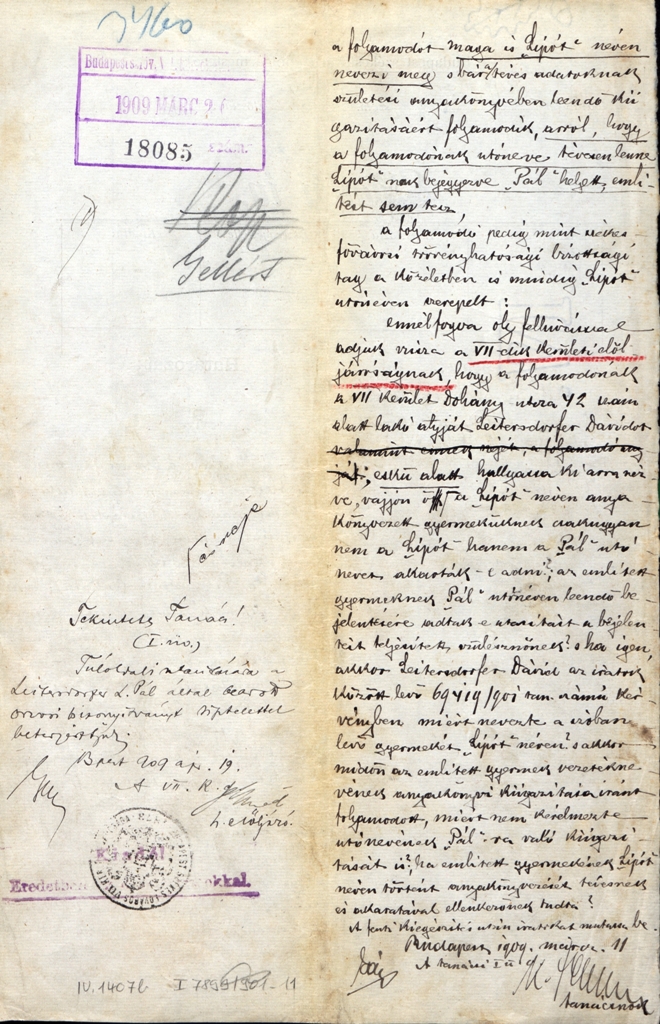 3460
Budapest
1909 MÁRC 2
18085 szám.
Gellért
Tekintetes Tanács!
(I. üo.)
Túloldali utasítására a
Leitersdorfer L. Pál által beadott
orvosi bizonyítványt tisztelettel
beterjesztjük.
Bpest 909 ápr. 19.
A VII. k.
h. elöljáró.
Eredetben
IV. 1407b
a folyamodót maga is "Lipót" néven
nevezi meg s bár téves adatoknak
születési anyakönyvében leendő kii-
gazításáért folyamodik, arról, hogy
a folyamodónak utóneve tévesen lenne
"Lipót" nak bejegyezve "Pál" helyett, emlí-
tést sem tesz,
a folyamodó pedig mint székes-
fővárosi törvényhatósági bizottsági
tag a közéletben is mindig "Lipót"
utónéven szerepelt:
ennélfogva oly felhívással
adjuk vissza a VII-dik kerületi elöl-
járóságnak, hogy a folyamodónak
a VII kerület Dohány utcza 42 szám
alatt lakó atyját Leitersdorfer Dávidot
valamint ennek nejét, a folyamodó any-
ját, eskü alatt hallgassa ki arra néz-
ve, vajjon a "Lipót" néven anya-
könyvezett gyermeküknek csakugyan
nem a "Lipót" hanem a "Pál" utó-
nevet akarták-e adni?; az említett
gyermeknek "Pál" utónéven leendő be-
jelentésére adtak-e utasítást a bejelen-
tést teljesített szülésznőnek? s ha igen,
akkor Leitersdorfer Dávid az iratok
között levő 69419/901 tan. számú kér-
vényben miért nevezte a szóban
levő gyermekét "Lipót" néven? s akkor
midőn az említett gyermek vezetékne-
vének anyakönyvi kiigazítása iránt
folyamodott, miért nem kérelmezte
utónevének "Pál"-ra való kiigazí-
tását is?; ha említett gyermekének "Lipót"
néven történt anyakönyvezését tévesnek
és akaratával ellenkezőnek tudta?
A fenti kiegészítés után iratokat mutassa be.
Budapest, 1909. márcz. 11
A tanács
tanácsnok